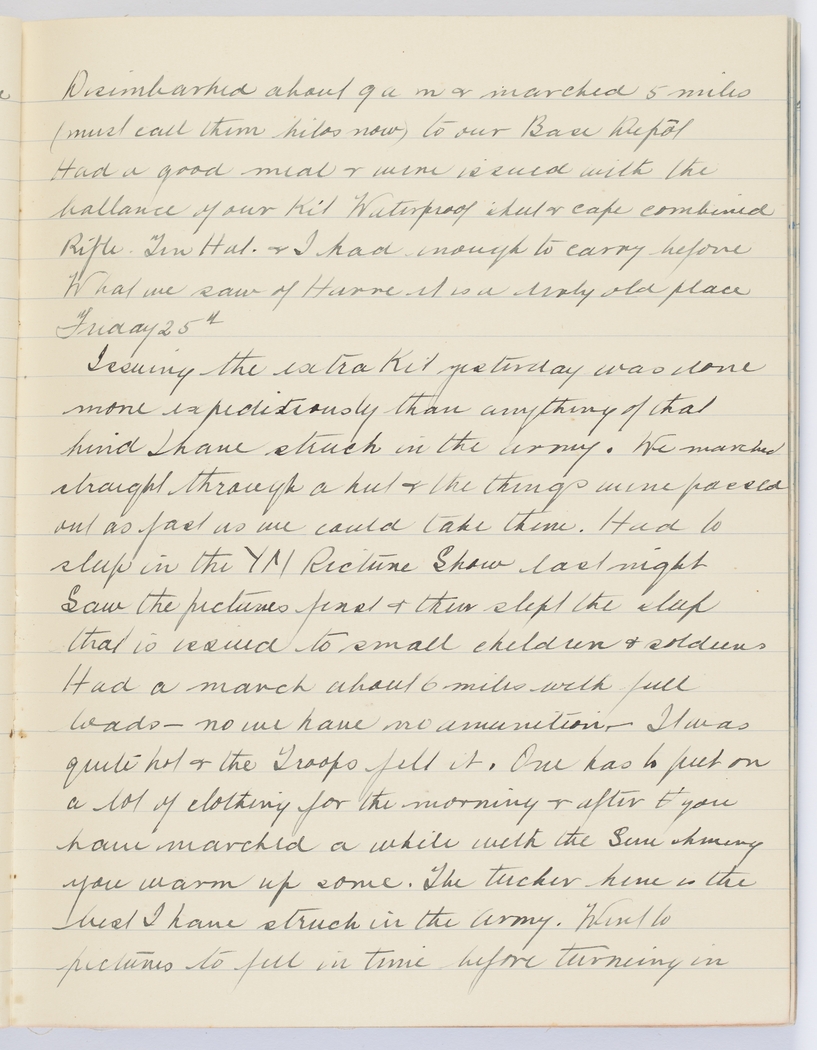 Disimbarked about 9 a m & marched 5 miles
(must call them kilos now) to our Base Depôt
Had a good meal & were issued with the
ballance of our Kit Waterproof sheet & cape combined
Rifle. Tin Hat. & I had enough to carry before
What we saw of Havre it is a dirty old place
Friday 25th
Issuing the extra Kit yesterday was done
more expeditiously than anything of that
kind I have struck in the army. We marched
straight through a hut & the things were passed
out as fast as we could take them. Had to
sleep in the YM Picture Show last night
Saw the pictures first & then slept the sleep
that is issued to small children & soldiers
Had a march about 6 miles with full
loads — no we have no amunition — It was
quite hot & the Troops felt it. One has to put on
a lot of clothing for the morning & after you
have marched a while with the Sun shining
you warm up some. The tucker here is the
best I have struck in the Army. Went to
pictures to fill in time before turneing in